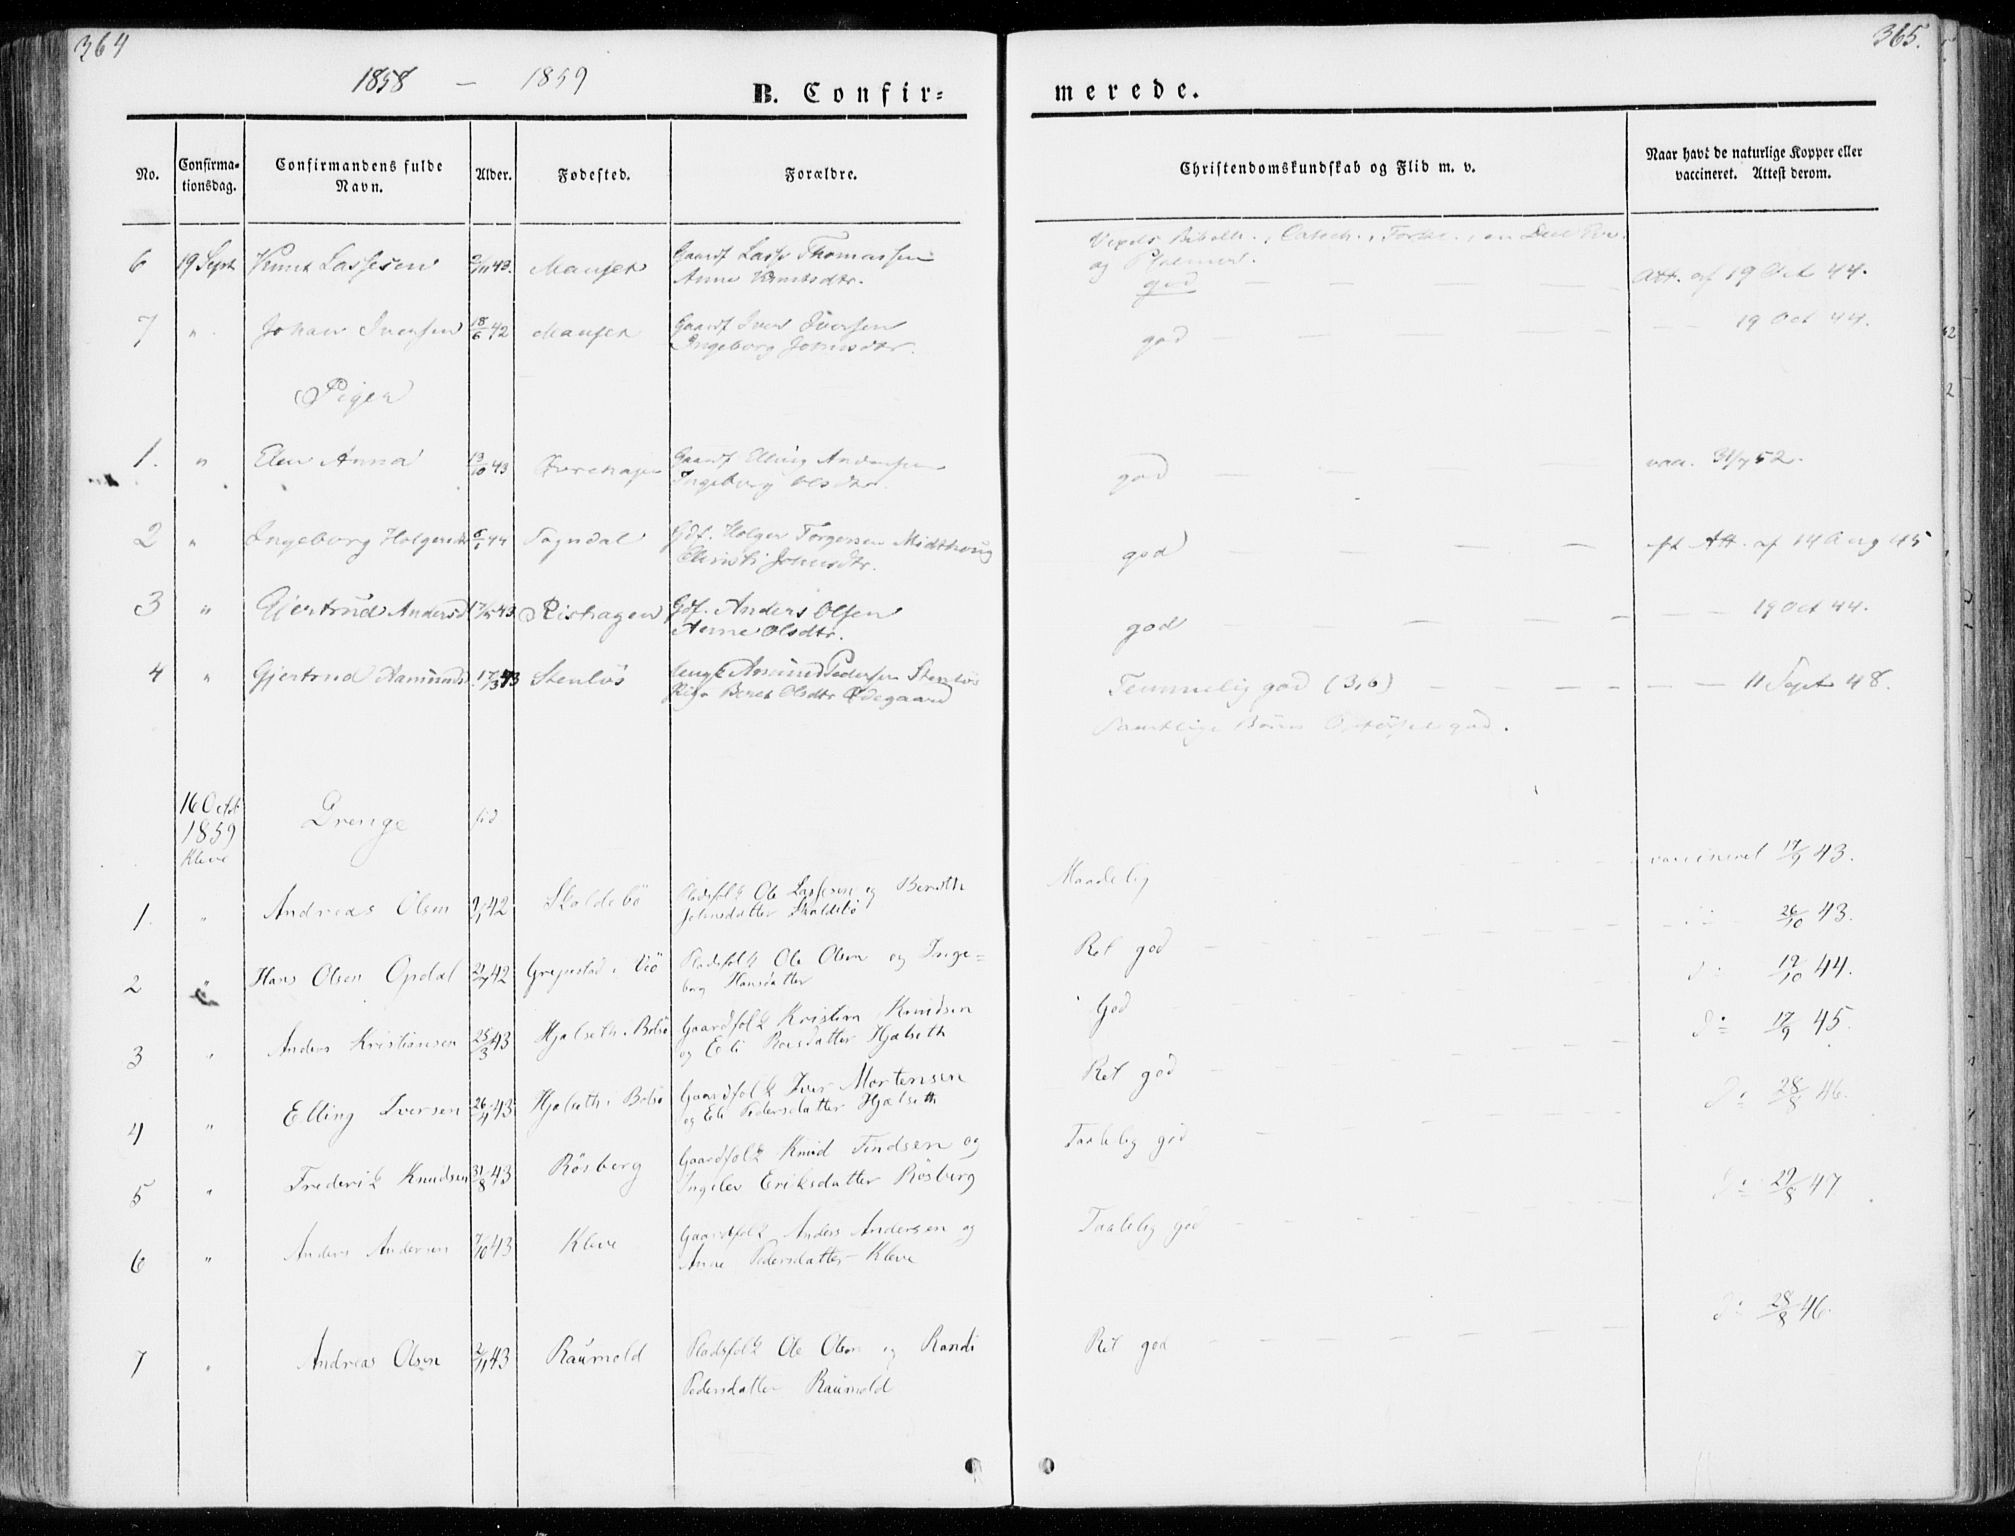 364
365.
1858 — 1859
B. Confir=
merede.
No.
Confirma=
tionsdag.
Confirmandens fulde
Navn.
Alder.
Fødested.
Forældre.
Christendomskundskab og Flid m. v.
Naar havt de naturlige Kopper eller
vaccineret. Attest derom.
og Psalmer.
6 19 Sept Knut Lassesen Gaardf Lasse Thomassen
Anne Knutsdtr. god Att. af 19 Oct 44.
7 " Johan Iversen 18/6 42 Gaardf Iver Iversen
Ingeborg Johnsdtr. god 19 Oct 44.
Piger
1. " Elen Anna 13/10 43 Gaardf Elling Andersen
Ingeborg Olsdtr. god vacc. 31/7 52.
2 " Ingeborg Holgersdtr 44 Gdf. Holger Torgersen
Christi Johnsdtr. god Att. af 14 Aug 45
3 " Gjertrud Andersd 43 Rishagen Gdf. Anders Olsen
Anne Olsdtr. god 19 Oct 44.
4 " Gjertrud Aamunds 17/3 43 Stenløs Aamund Pedersen Stenløs
Pige Beret Olsdtr Ødegaard Temmelig god (3,0) 11 Sept 48.
Samtlige Børns Opførsel god.
16 Octbr
1859
Kleve
Drenge
fød
1. " Andreas Olsen 9/1 42 Skaldebø Pladsfolk Ole Lassesen og Bereth
Johnsdatter Skaldebø Maadelig vaccineret 17/9 43.
2 " Hans Olsen Opdal 42 i Veø Pladsfolk Ole Olsen og Inge=
borg Hansdatter Ret god 26/10 43.
3 " Anders Kristiansen 25/3 43 Hjelseth i Bolsø Gaardfolk Kristian Knudsen
og Eli Roesdatter Hjelseth God d: 19/10 44.
4 " Elling Iversen 26/4 43 Hjelseth i Bolsø Gaardfolk Iver Mortensen
og Eli Pedersdatter Hjelseth Ret god d: 17/9 45.
5 " Frederik Knudsen 31/8 43 Røsberg Gaardfolk Knud Findsen og
Ingelev Eriksdatter Røsberg Taalelig god d: 28/8 46.
6 " Anders Andersen 7/10 43 Kleve Gaardfolk Anders Andersen og
Anne Pedersdatter Kleve Taalelig god d: 29/8 47
7 " Andreas Olsen 2/11 43 Raumold Pladsfolk Ole Olsen og Randi
Pedersdatter Raumold Ret god d: 28/8 46.